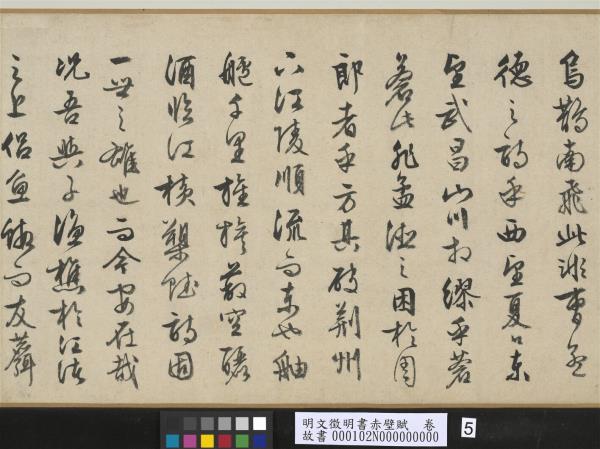 烏鵲南飛此非曹孟
德之詩乎西望夏口東
望武昌山川相繆乎蒼
蒼此非孟德之困於周
郎者乎方其破荊州
下江陵順流而東也舳
艫千里旌旗蔽空釃
酒臨江橫槊賦詩固
一世之雄也而今安在哉
况吾與子漁樵於江渚
之上侶魚蝦而友麋
明文徵明書赤壁賦 卷
故書 000102N000000000
5